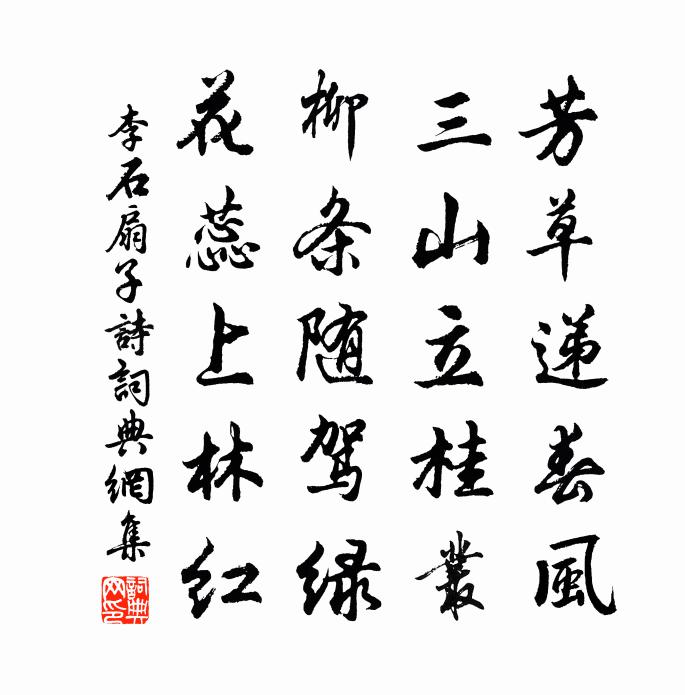 芳草递春風
三山立桂叢
柳条随驾绿
花蕊上林红
李石扇子詩詞典網集
詞典网印